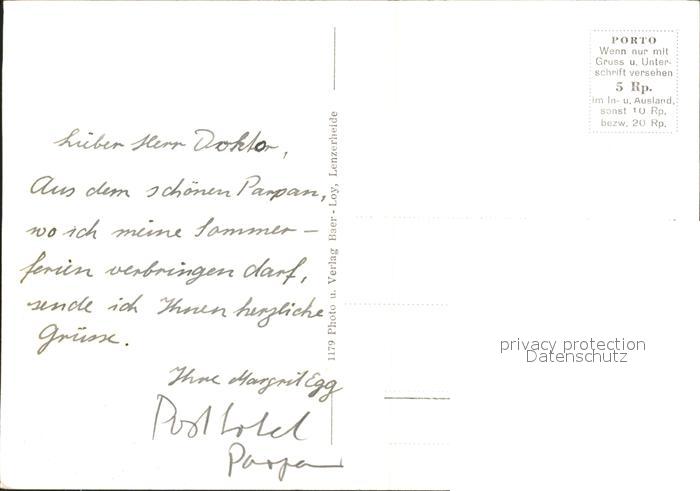 Lieber Herr Doktor,
Aus dem schönen Parpan,
wo ich meine Sommer-
ferien verbringen darf,
sende ich Ihnen herzliche
Grüsse.
Ihre Margrit Egg
Posthotel
Parpan
1179 Photo u. Verlag Baer-Loy, Lenzerheide
PORTO
Wenn nur mit
Gruss u. Unter-
schrift versehen
5 Rp.
im In- u. Ausland,
sonst 10 Rp.
bezw. 20 Rp.
privacy protection
Datenschutz